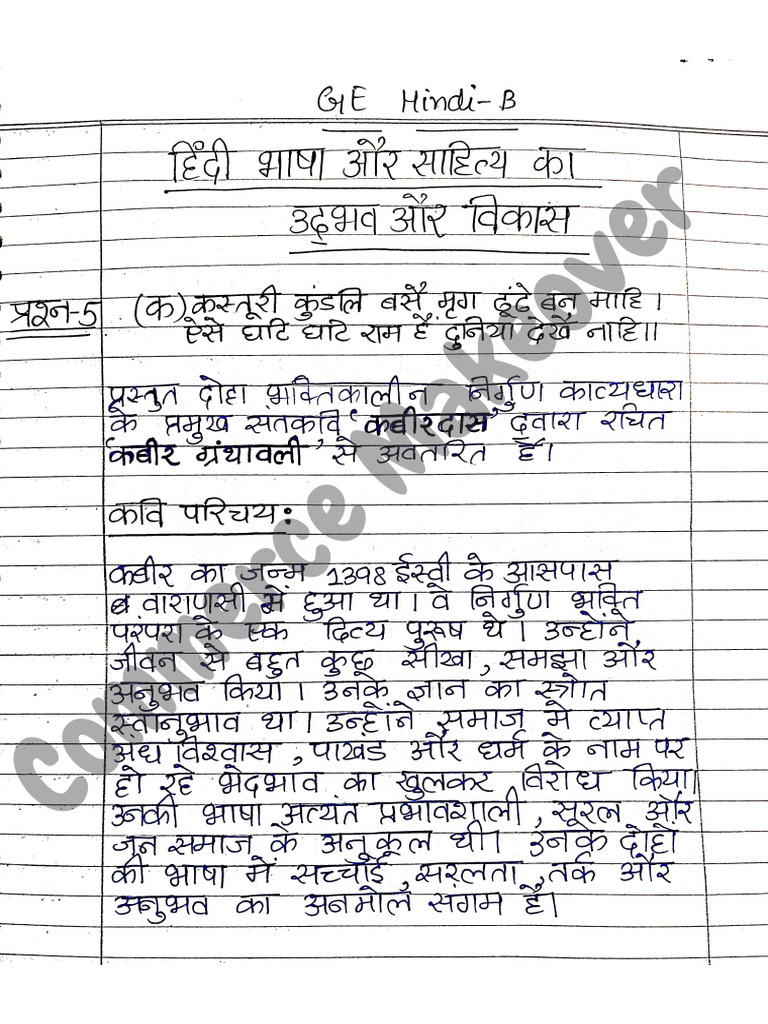 GE Hindi-B
हिंदी भाषा और साहित्य का
उद्भव और विकास
प्रश्न-5 (क) कस्तूरी कुंडलि बसै मृग ढूंढे बन माहि।
ऐसे घटि घटि राम हैं दुनिया देखै नाहि।।
प्रस्तुत दोहा भक्तिकालीन निर्गुण काव्यधारा
के प्रमुख संतकवि 'कबीरदास' द्वारा रचित
'कबीर ग्रंथावली' से अवतरित है।
कवि परिचय:
कबीर का जन्म 1398 ईस्वी के आसपास
वाराणसी में हुआ था। वे निर्गुण भक्ति
परंपरा के एक दिव्य पुरूष थे। उन्होंने
जीवन से बहुत कुछ सीखा, समझा और
अनुभव किया। उनके ज्ञान का स्त्रोत
स्वानुभाव था। उन्होंने समाज मे व्याप्त
अंध विश्वास, पाखंड और धर्म के नाम पर
हो रहे भेदभाव का खुलकर विरोध किया।
उनकी भाषा अत्यंत प्रभावशाली, सरल और
जन समाज के अनुकूल थी। उनके दोहो
की भाषा मे सच्चाई, सरलता, तर्क और
अनुभव का अनमोल संगम है।
Commerce Makeover